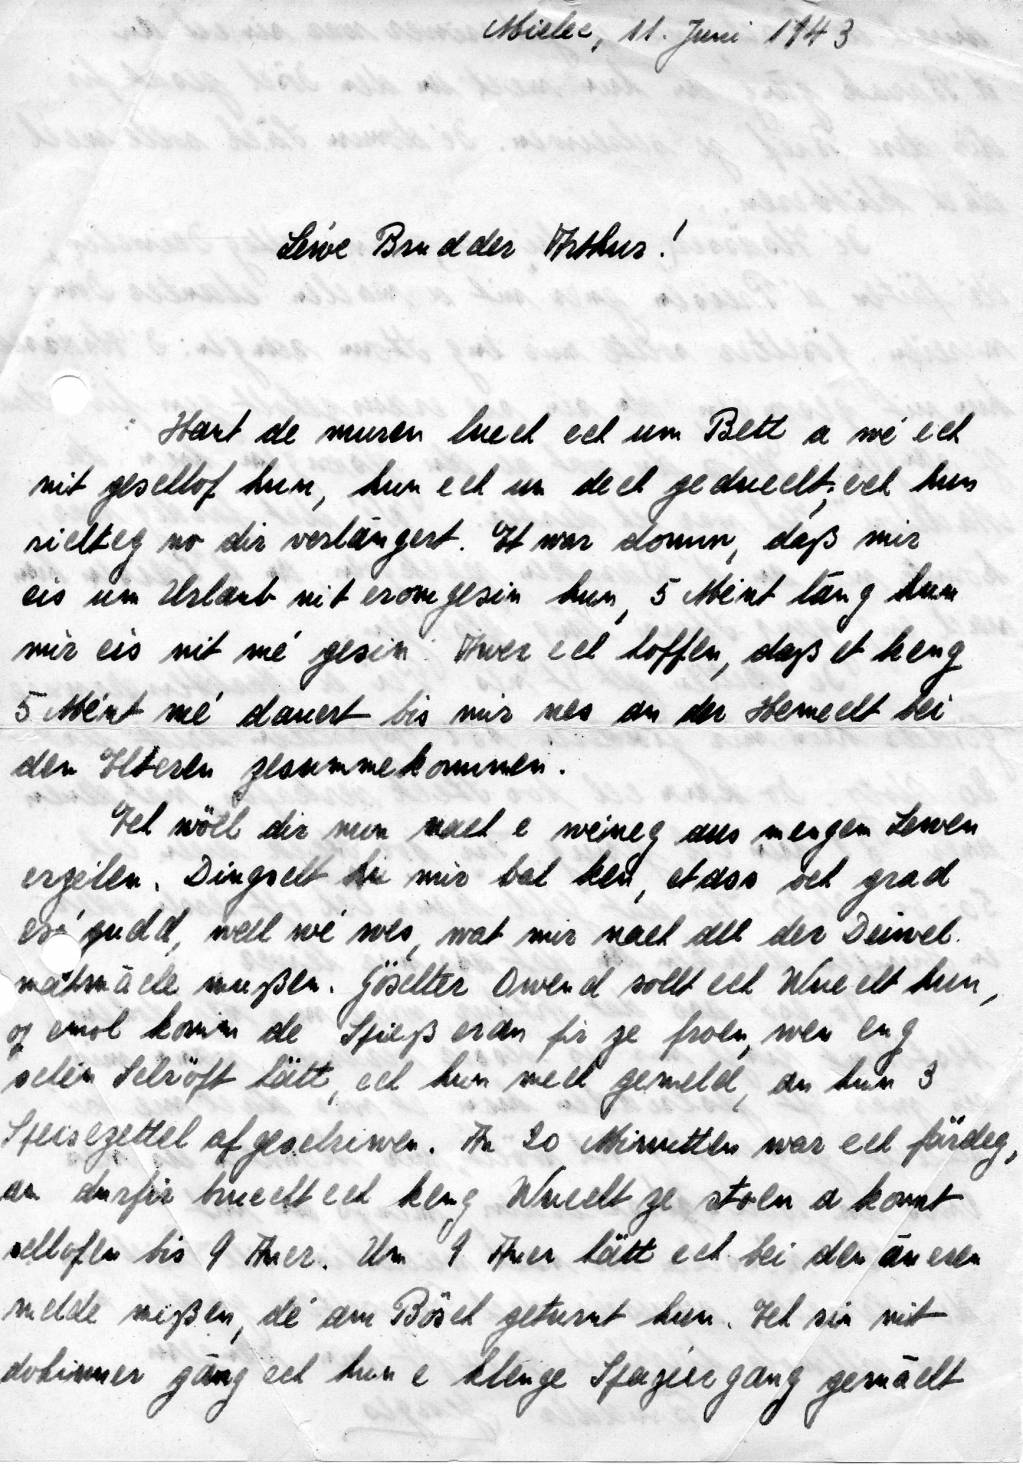 Mielec, 11. Juni 1943
Léiwe Brudder Arthur!
Haut de muren luech ech um Bett a wé ech
nit geschlof hun, hun ech un dech geduecht, ech hun
richteg no dir verlängert. Et war domm, daß mir
eis um Urlaub nit erom gesin hun, 5 Mént läng hun
mir eis nit mé gesin. Awer ech hoffen, daß et keng
5 Mént mé dauert bis mir nes an der Hemecht bei
den Elteren zesummekommen.
Ech wöll dir nun nach e weineg aus mengem Lewen
erzielen. Dingscht hu mir bal ken, et ass och grad
esé gudd, well wé wes, wat mir nach all der Deiwel
matmäche mußen. Göschter Owend sollt ech Wuecht hun,
op emol komm de Spieß eran fir ze froen, wen eng
schéin Schröft hätt, ech hun mech gemeld, an hun 3
Speisezettel afgeschriwen. An 20 Minutten war ech färdeg,
an durfir brucht ech keng Wuecht ze stoen a konnt
schlofen bis 9 Auer. Um 9 Auer hätt ech bei den äneren
melde mißen, dé am Bösch geturnt hun. Ech sin nit
dohinner gäng ech hun e klenge Spaziergang gemächt